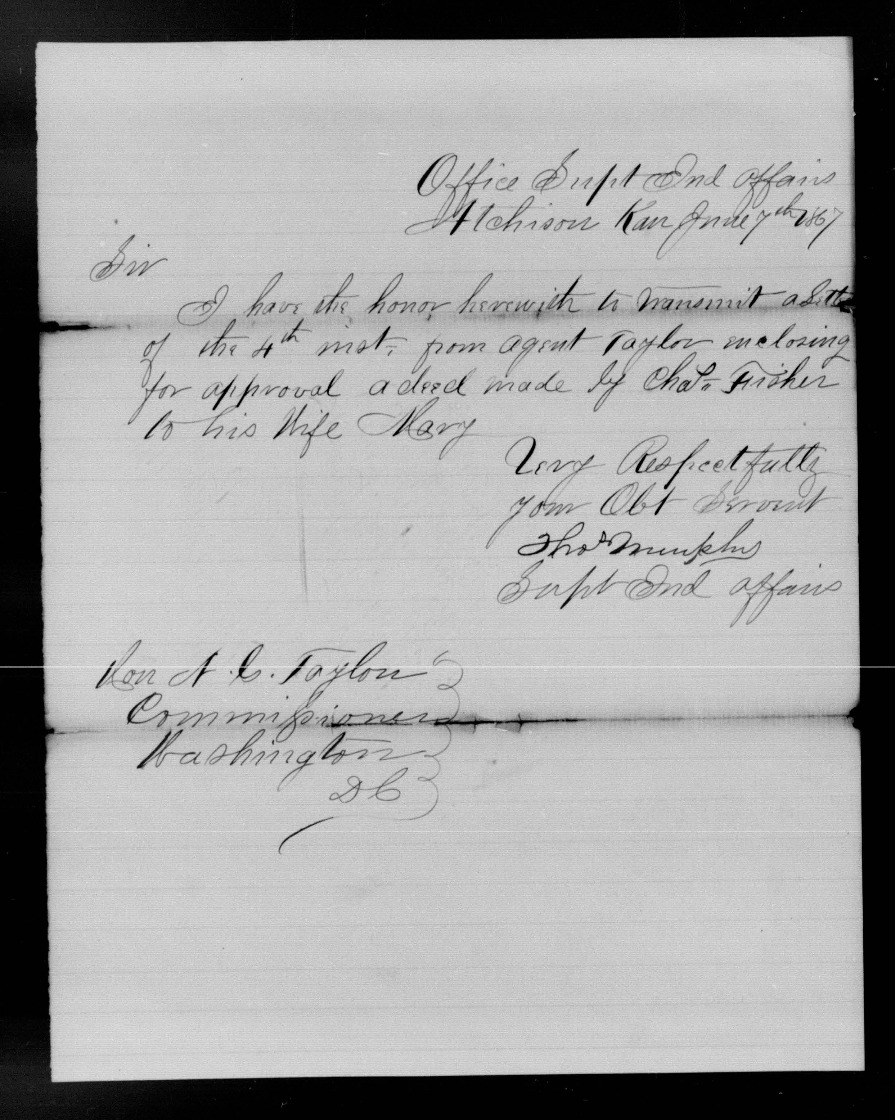 Office Supt Ind affairs
Atchison Kan June 7th 1867
Sir
I have the honor herewith to transmit a letter
of the 4th inst, from agent Taylor enclosing
for approval a deed made by Chas. Fisher
to his Wife Mary
Very Respectfully
your Obt Servent
Thos Murphy
Supt Ind affairs
Hon N. G. Taylor
Commissioner
Washington
DC